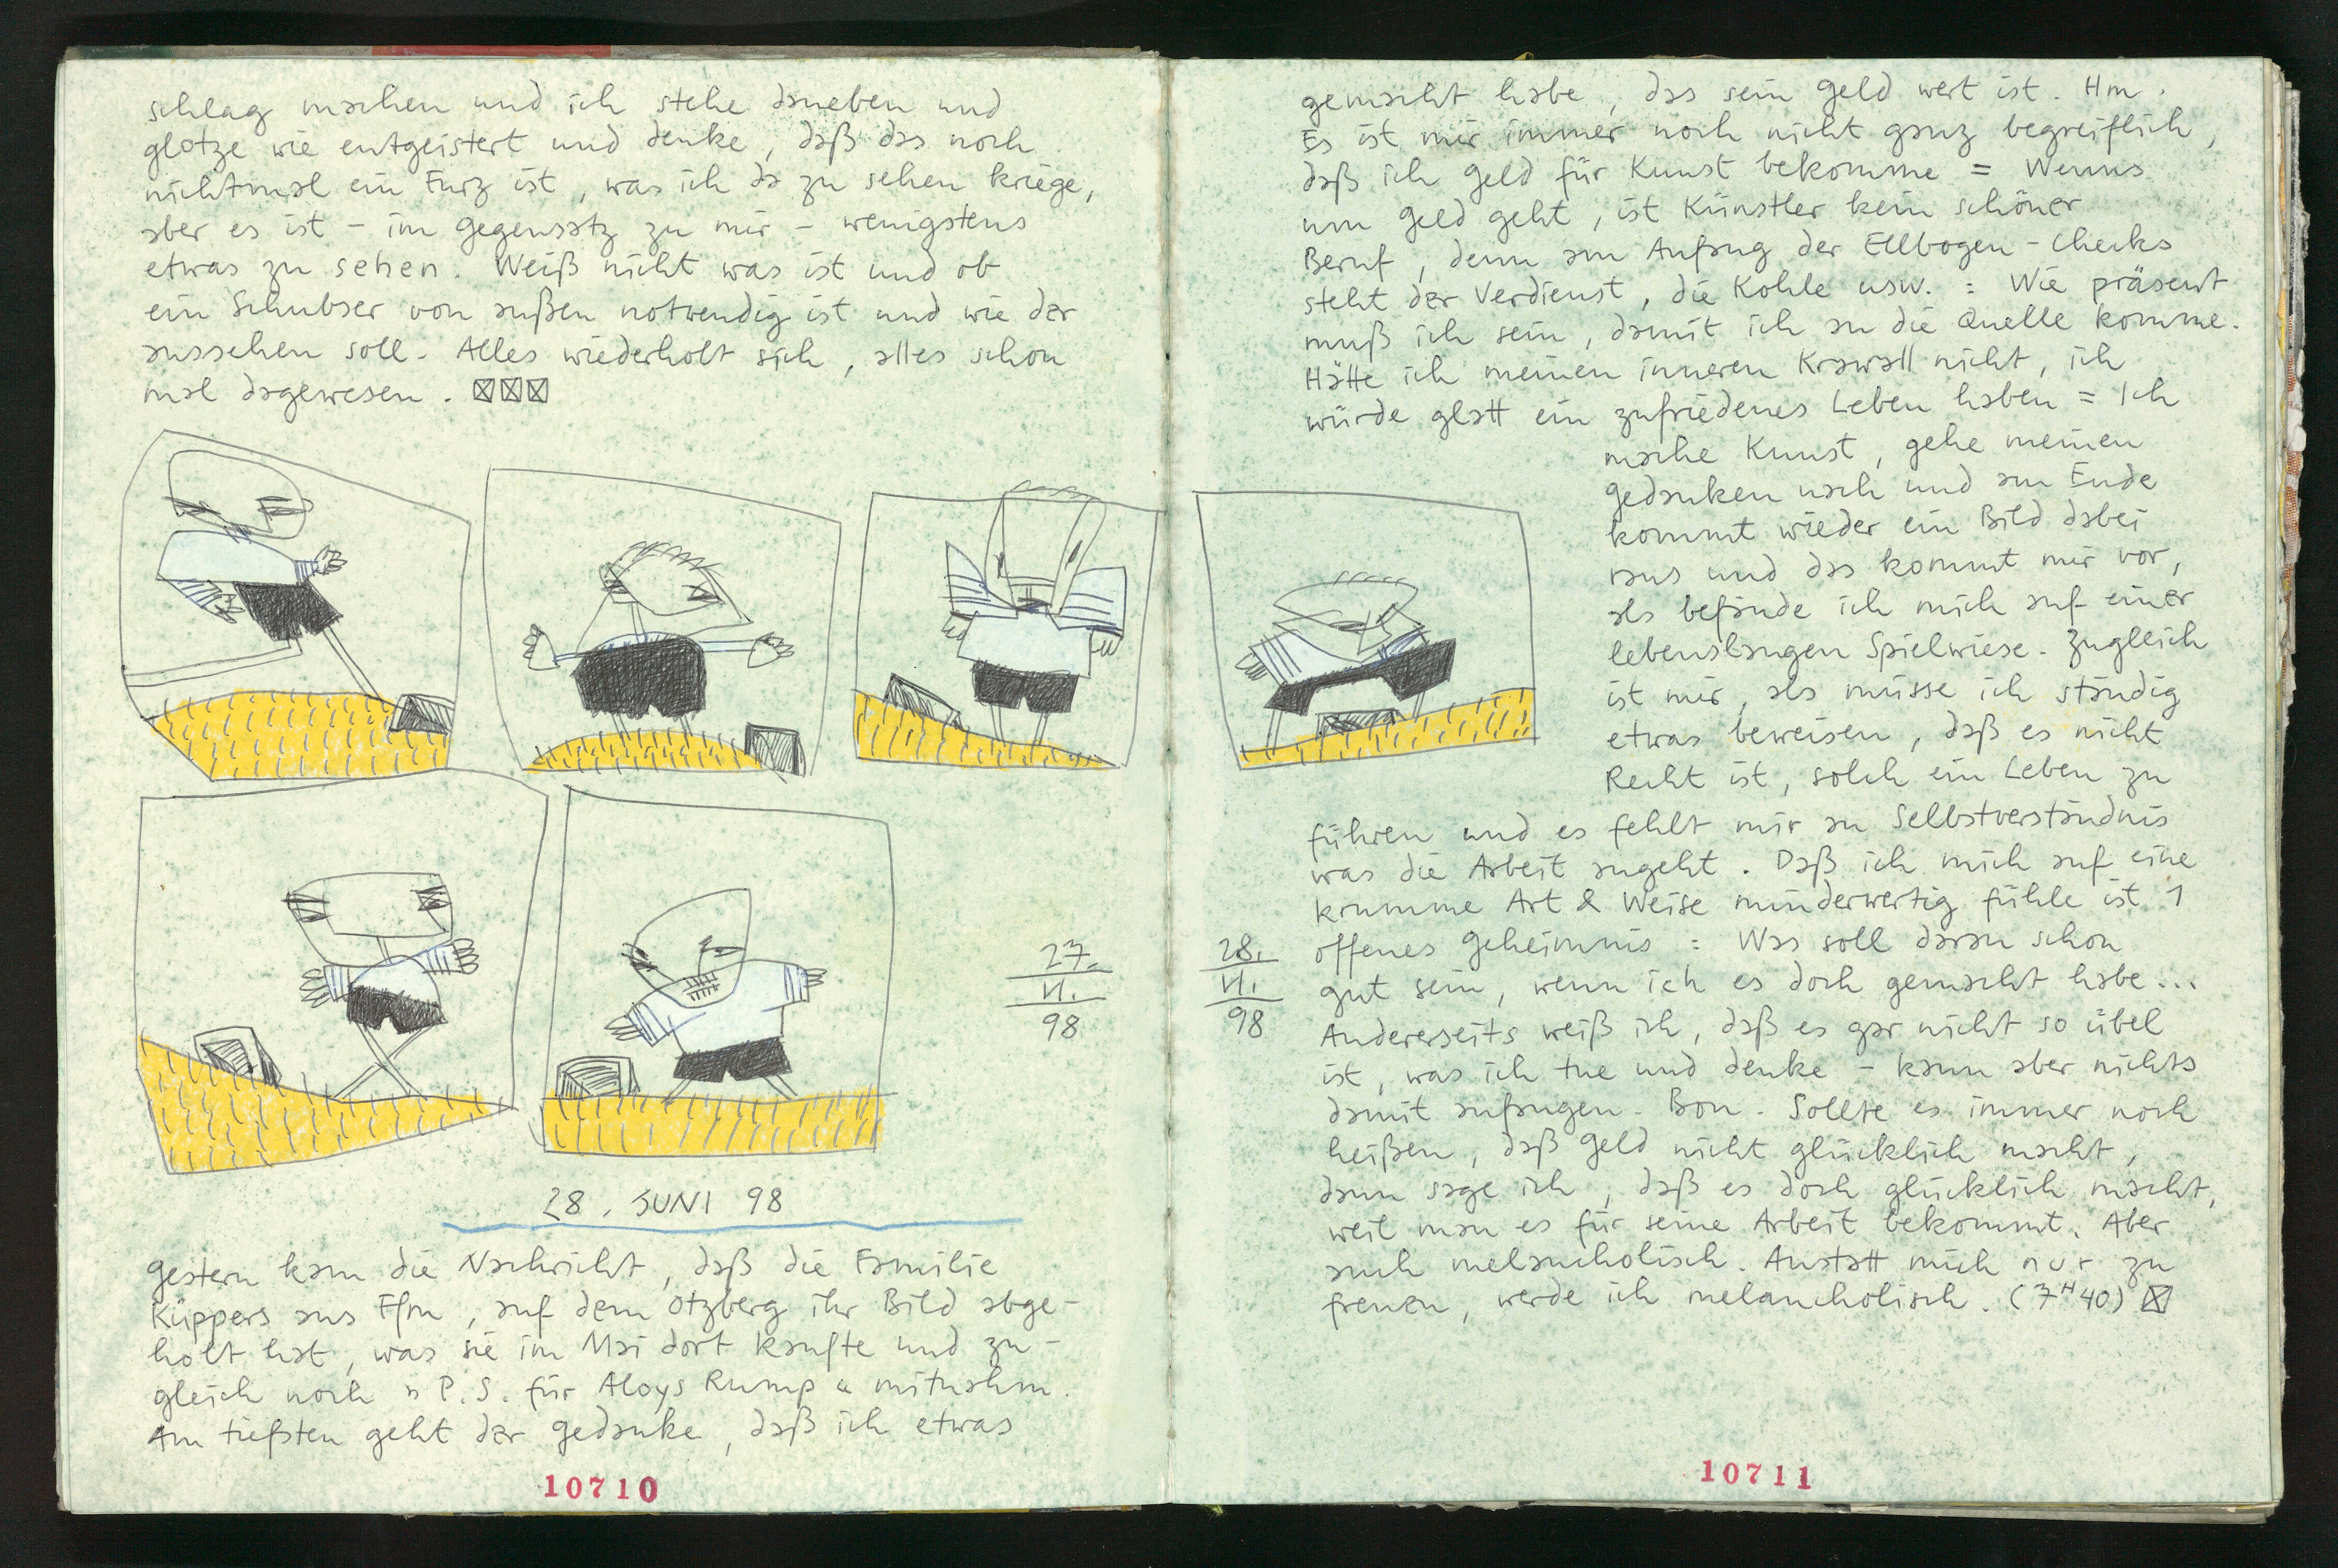 schlag machen und ich stehe daneben und
glotze wie entgeistert und denke, daß das noch
nichtmal ein Furz ist, was ich da zu sehen kriege,
aber es ist – im Gegensatz zu mir – wenigstens
etwas zu sehen. Weiß nicht was ist und ob
ein Schubser von außen notwendig ist und wie der
aussehen soll. Alles wiederholt sich, alles schon
mal dagewesen. ☒☒☒
27.
VI.
98
28. JUNI 98
Gestern kam die Nachricht, daß die Familie
Küppers aus Ffm, auf dem Otzberg ihr Bild abge-
holt hat, was sie im Mai dort kaufte und zu-
gleich noch "P.S. für Aloys Rump" mitnahm.
Am tiefsten geht der Gedanke, daß ich etwas
10710
gemacht habe, das sein Geld wert ist. Hm.
Es ist mir immer noch nicht ganz begreiflich,
daß ich Geld für Kunst bekomme = Wenns
um Geld geht, ist Künstler kein schöner
Beruf, denn am Anfang der Ellbogen-Checks
steht der Verdienst, die Kohle usw. : Wie präsent
muß ich sein, damit ich an die Quelle komme.
Hätte ich meinen inneren Krawall nicht, ich
würde glatt ein zufriedenes Leben haben = Ich
mache Kunst, gehe meinen
Gedanken nach und am Ende
kommt wieder ein Bild dabei
raus und das kommt mir vor,
als befände ich mich auf einer
lebenslangen Spielwiese. Zugleich
ist mir, als müsse ich ständig
etwas beweisen, daß es nicht
Recht ist, solch ein Leben zu
führen und es fehlt mir an Selbstverständnis
was die Arbeit angeht. Daß ich mich auf eine
krumme Art & Weise minderwertig fühle ist 1
offenes Geheimnis : Was soll daran schon
gut sein, wenn ich es doch gemacht habe...
Andererseits weiß ich, daß es gar nicht so übel
ist, was ich tue und denke – kann aber nichts
damit anfangen. Bon. Sollte es immer noch
heißen, daß Geld nicht glücklich macht,
dann sage ich, daß es doch glücklich macht,
weil man es für seine Arbeit bekommt. Aber
auch melancholisch. Anstatt mich nur zu
freuen, werde ich melancholisch. (7ᴴ40) ☒
28.
VI.
98
10711